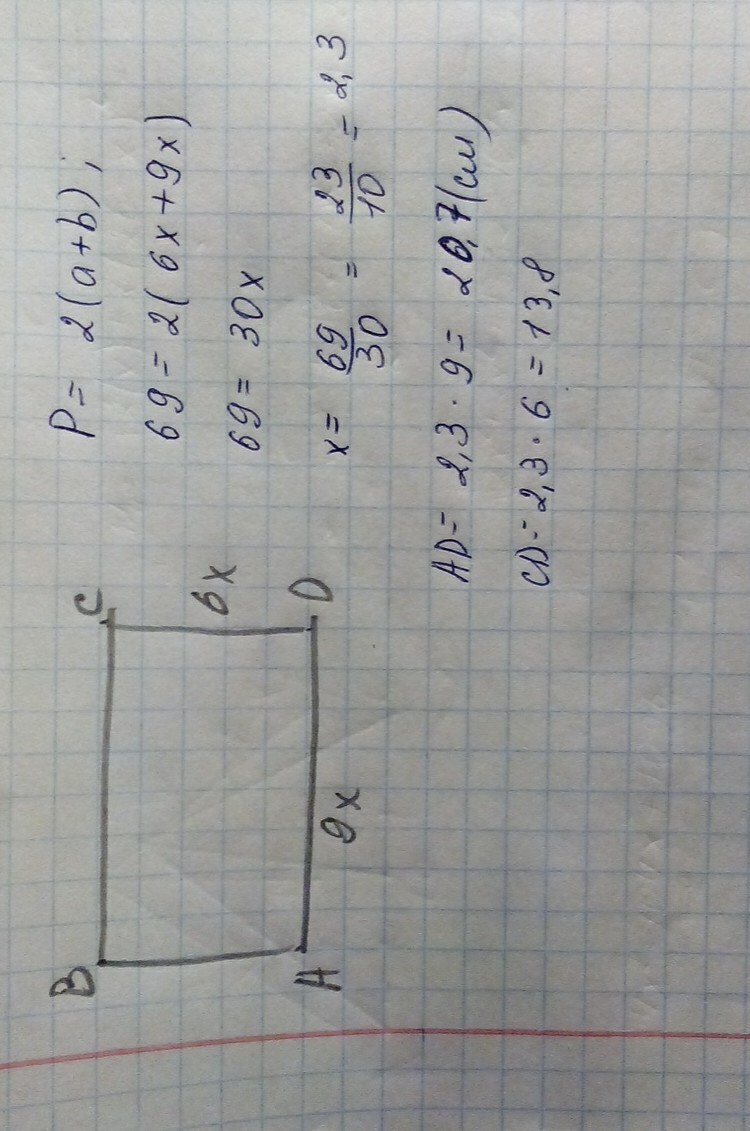 B C
6x
A D
9x
P = 2(a+b);
69 = 2(6x+9x)
69 = 30x
x = 69/30 = 23/10 = 2,3
AD = 2,3 · 9 = 20,7 (см)
CD = 2,3 · 6 = 13,8